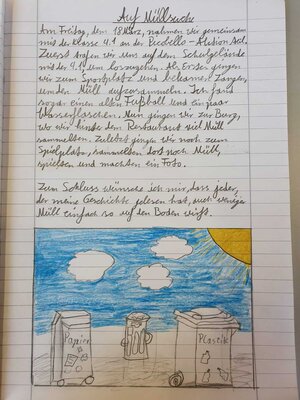 Auf Müllsuche
Am Freitag, dem 18. März, nahmen wir gemeinsam
mit der Klasse 4.1 an der Picobello-Aktion teil.
Zuerst trafen wir uns auf dem Schulgelände
mit der 4.1 um loszugehen. Als Erstes gingen
wir zum Sportplatz und bekamen Zangen,
um den Müll aufzusammeln. Ich fand
sogar einen alten Fußball und ein paar
Wasserflaschen. Nun gingen wir zur Burg,
wo wir hinter dem Restaurant viel Müll
sammelten. Zuletzt gingen wir noch zum
Spielplatz, sammelten dort noch Müll,
spielten und machten ein Foto.
Zum Schluss wünsche ich mir, dass jeder,
der meine Geschichte gelesen hat, auch weniger
Müll einfach so auf den Boden wirft.
Papier
Plastik